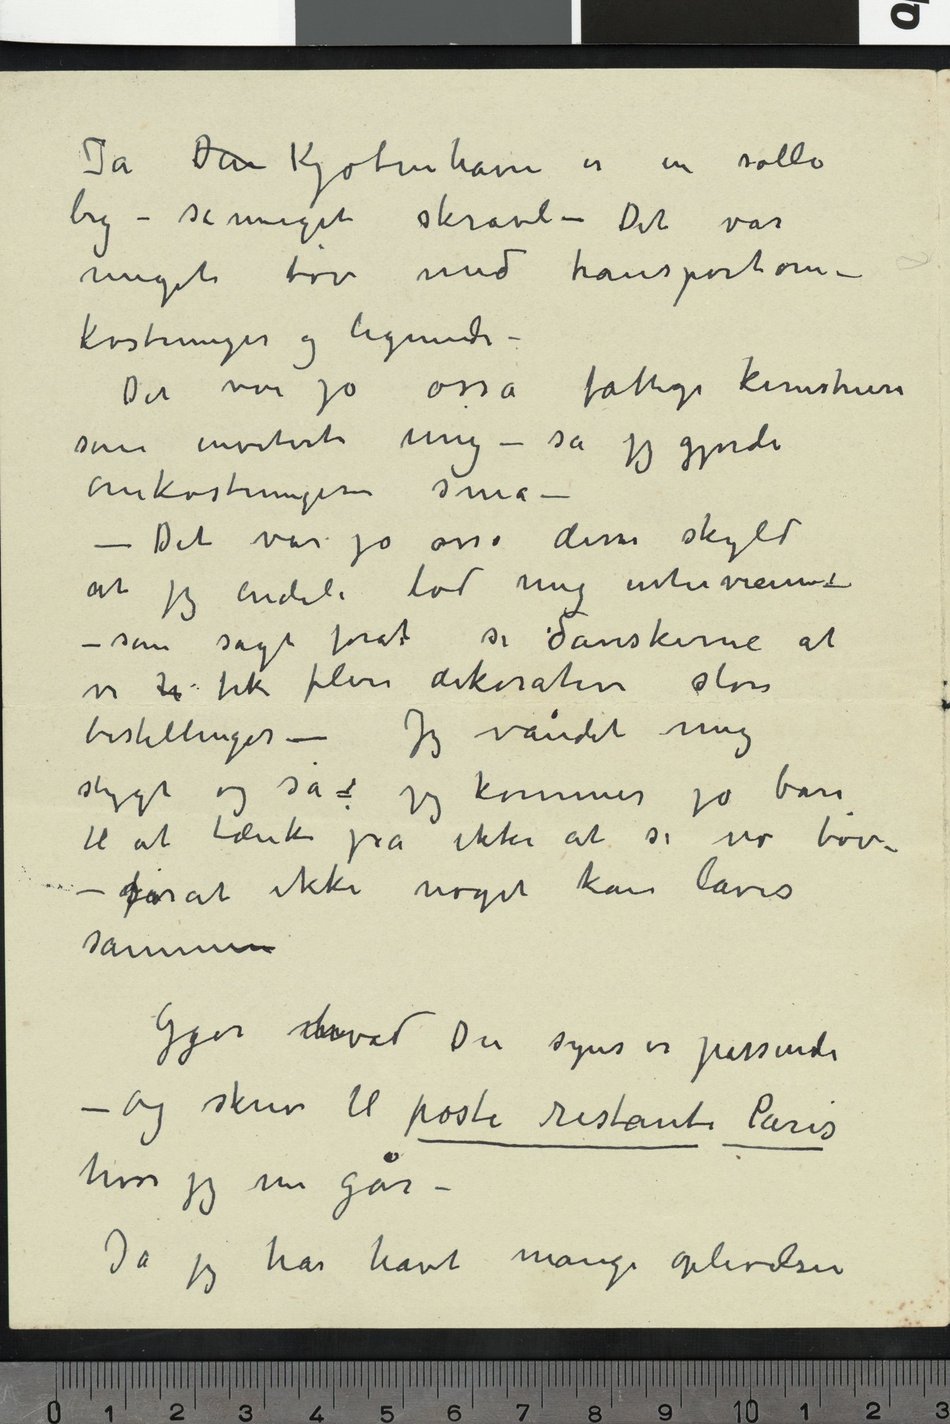 Ja Dan Kjøbenhavn er en solle
by – så meget skravl – Det var
meget tøv med transportom–
kostninger og lignende –
Det var jo osså fattige kunstnere
som inviterte mig – så jeg gjorde
omkostningern små –
– Det var jo osså deres skyld
at jeg endeli lod mig interviewe –
– som sagt forat si danskerne at
vi fik flere dekorative store
bestillinger – Jeg våndet mig
stygt og så – jeg kommer jo bare
til at tænke på ikke at si no tøv –
– forat ikke noget kan laves
sammen
Gjør hvad Du synes er passende
– og skriv til poste restante Paris
hvor jeg nu går –
Ja jeg har havt mange oplevelser
0 1 2 3 4 5 6 7 8 9 10 1 2 3